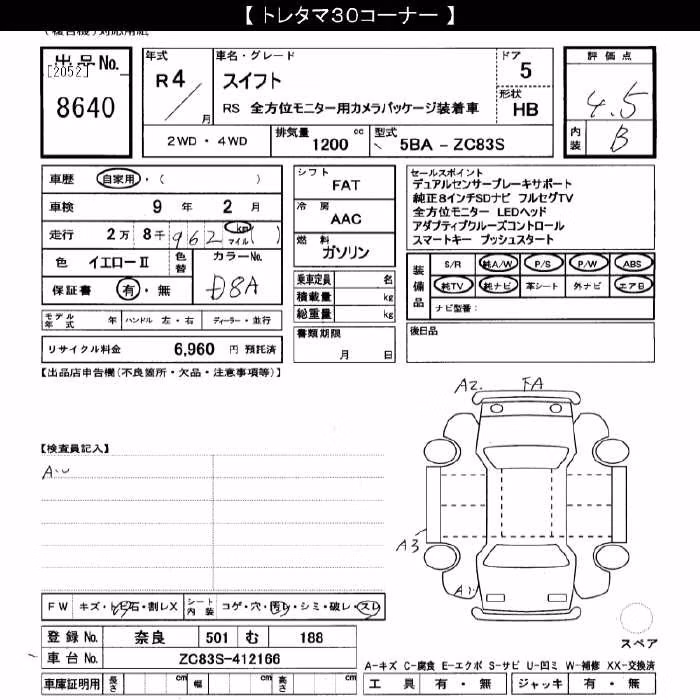 【 トレタマ30コーナー 】
出品No.
[2052]
8640
年式
R4
月
車名・グレード
スイフト
RS 全方位モニター用カメラパッケージ装着車
ドア
5
形状
HB
評価点
4.5
内装
B
2WD・4WD
排気量
1200 cc
型式
5BA - ZC83S
車歴 自家用・( )
車検 9年 2月
走行 2万 8千 962 km マイル ( )
色 イエローⅡ 色替
カラーNo.
D8A
保証書 有・無
モデル年式 年 ハンドル 左・右 ディーラー・並行
リサイクル料金 6,960 円 預託済
シフト
FAT
冷房
AAC
燃料
ガソリン
乗車定員 名
積載量 kg
総重量 kg
書類期限
月 日
セールスポイント
デュアルセンサーブレーキサポート
純正8インチSDナビ フルセグTV
全方位モニター LEDヘッド
アダプティブクルーズコントロール
スマートキー プッシュスタート
装備品
S/R 純A/W P/S P/W ABS
純TV 純ナビ 革シート 外ナビ エアB
ナビ型番:
後日品
【出品店申告欄(不良箇所・欠品・注意事項等)】
【検査員記入】
A2
FA
A3
A1
FW キズ・トビ石・割レX シート内装 コゲ・穴・汚レ・シミ・破レ・スレ
登録No. 奈良 501 む 188
車台No. ZC83S-412166
車庫証明用 長さ cm 幅 cm 高さ cm
スペア
A-キズ C-腐食 E-エクボ S-サビ U-凹ミ W-補修 XX-交換済
工具 有・無 ジャッキ 有・無